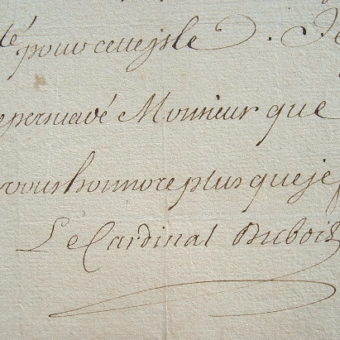 té pour cette isle. Je
persuadé Monsieur que
vous honnore plus que je
Le Cardinal Dubois